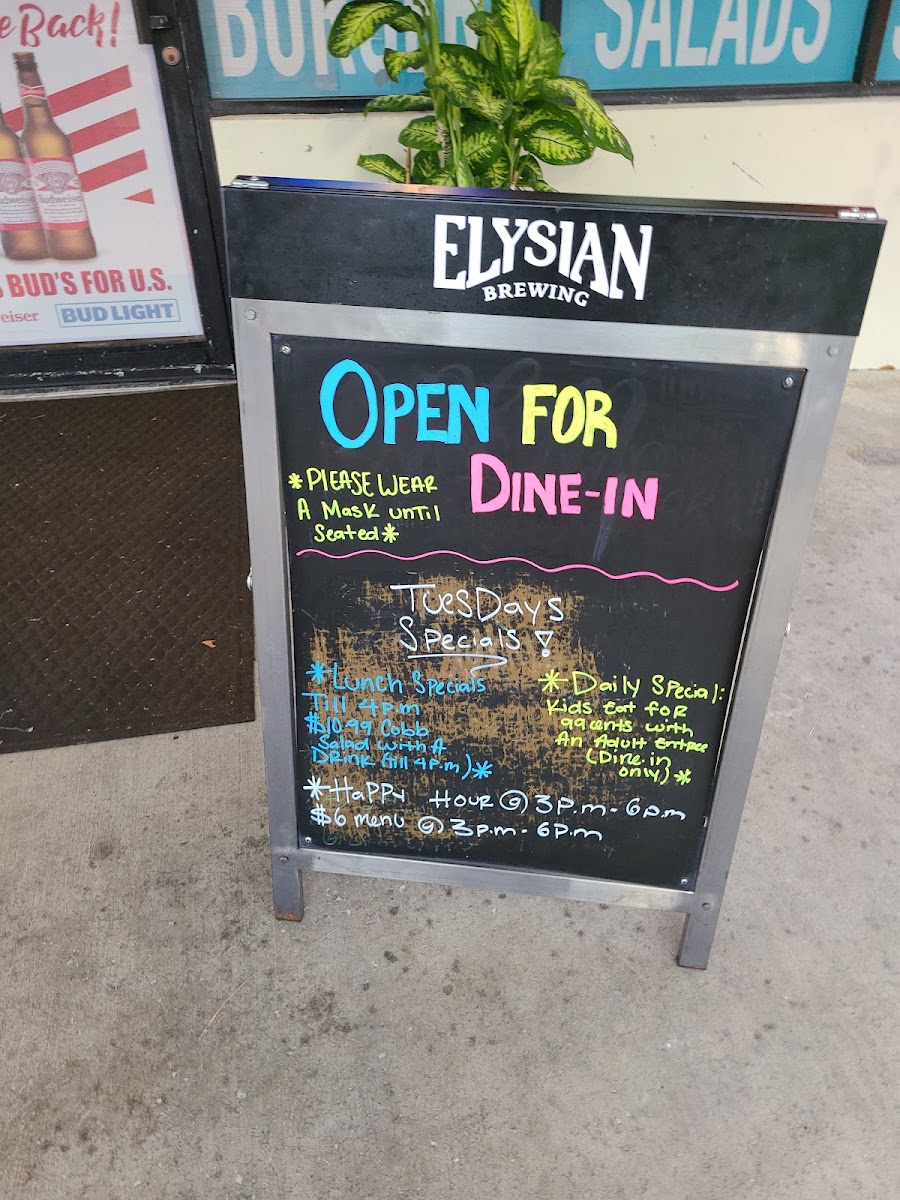 e Back!
Budweiser
Budweiser
BUD'S FOR U.S.
eiser
BUD LIGHT
BURGER
SALADS
ELYSIAN
BREWING
OPEN FOR
DINE-IN
*PLEASE WEAR
A MASK unTiL
Seated*
TuesDays
Specials!
*Lunch Specials
Till 4p.m
$10.99 Cobb
Salad with A
DRink (till 4p.m)*
*Daily Special:
Kids Eat foR
99cents with
An Adult Entree
(Dine.in
only)*
*HaPPy HOUR @ 3p.m - 6p.m
$6 menu @ 3p.m - 6P.m